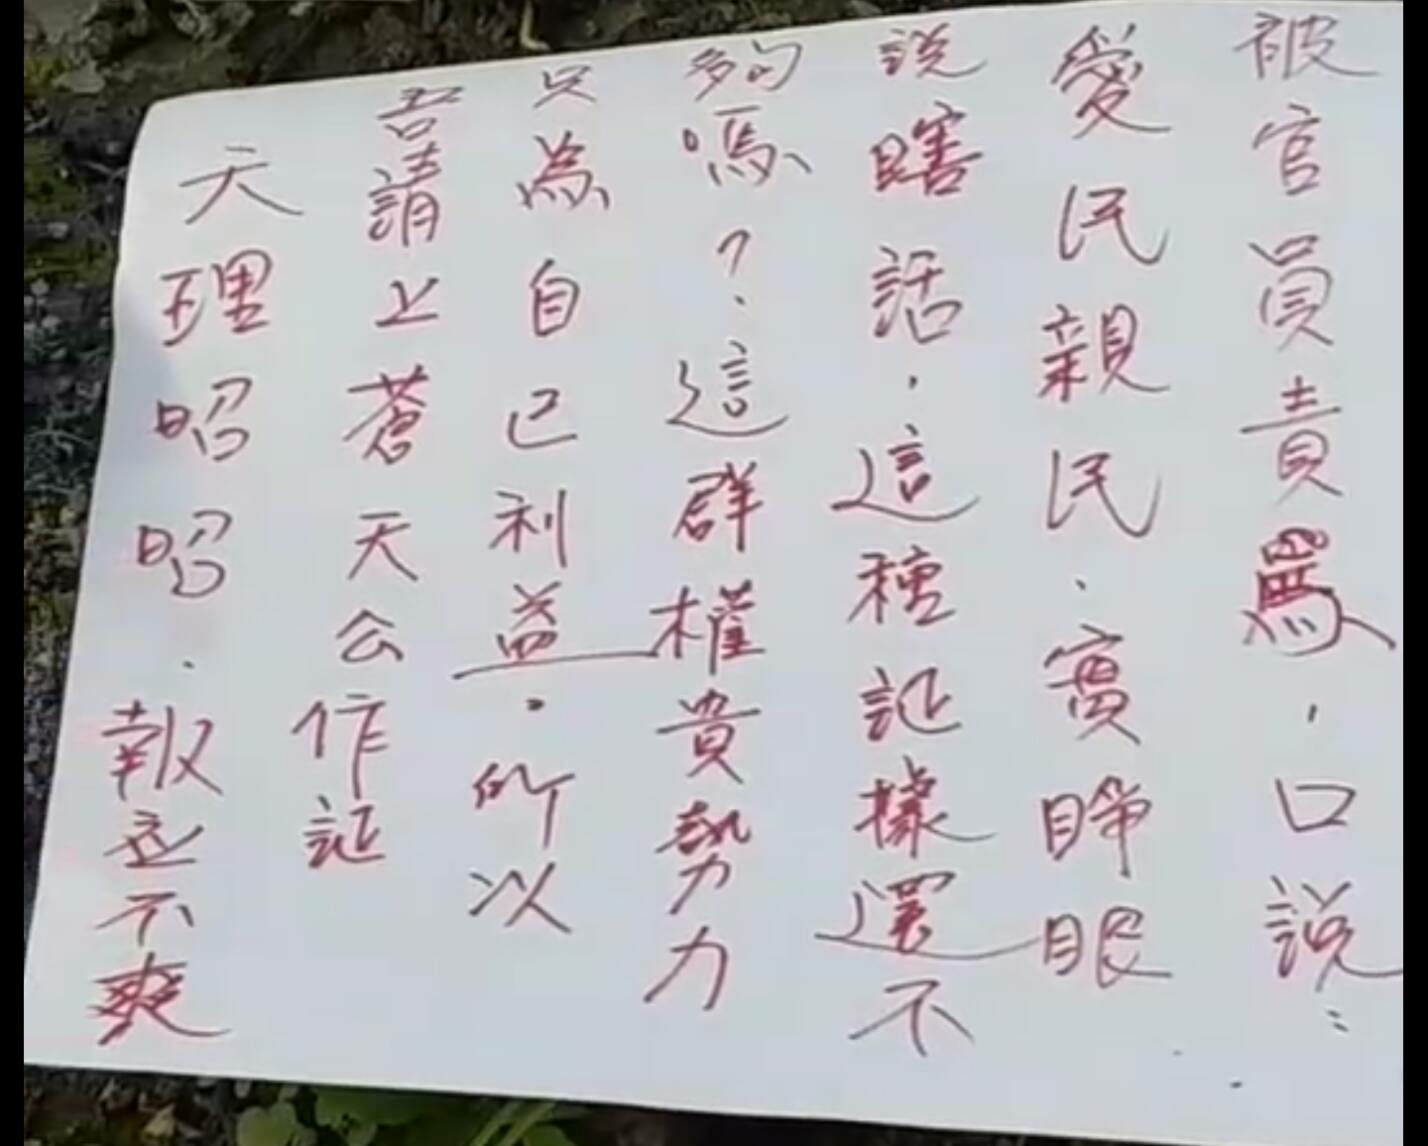 被官員責罵，口說：
愛民親民．實睜眼
說瞎話，這種証據還不
夠嗎？．這群權貴勢力
只為自己利益．所以
吾請上蒼天公作証
天理昭昭．報应不爽